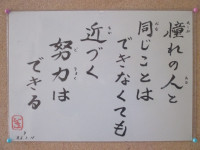 憧れの人と
同じことは
できなくても
近づく
努力は
できる